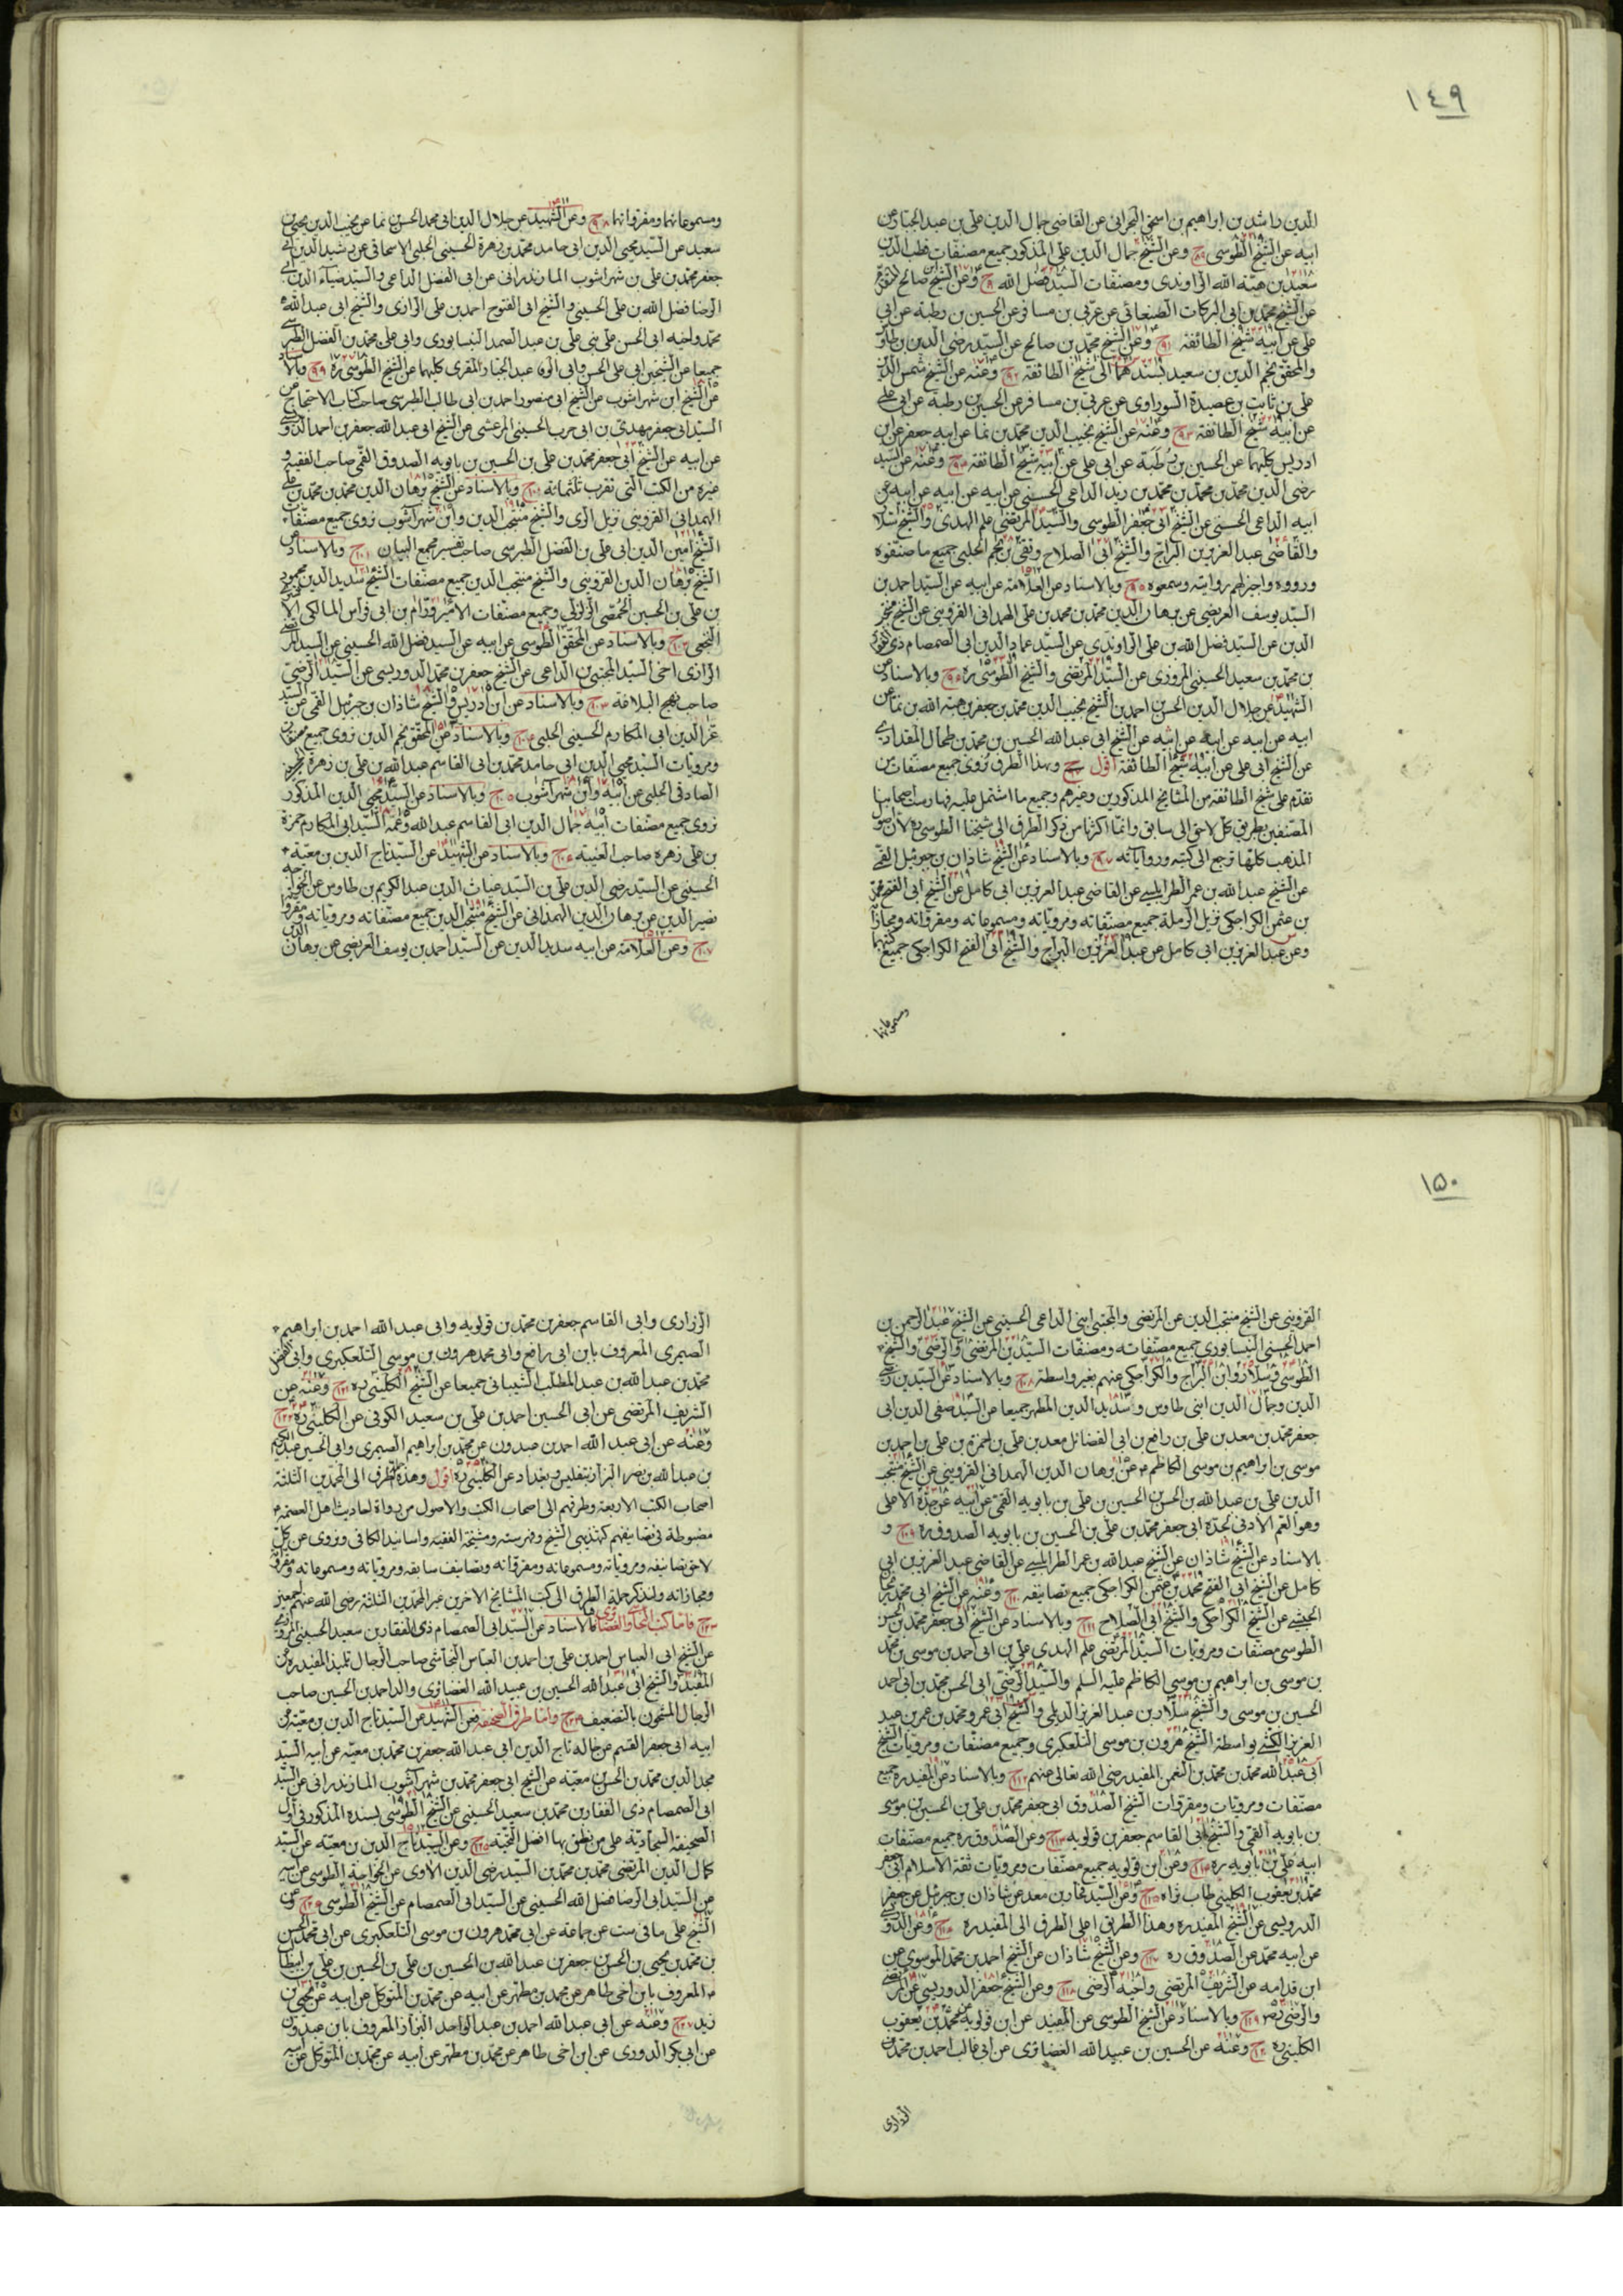 ١٤٩
الدين راشد بن ابراهيم بن اسحق البحرانى عن القاضى جمال الدين على بن عبد الجبار عن
ابيه عن الشيخ الطوسى وعن الشيخ جمال الدين على المذكور جميع مصنفات قطب الدين
سعيد بن هبة الله الراوندى ومصنفات السيد فضل الله وعن الشيخ صالح
عن الشيخ محمد بن ابى البركات الصنعانى عن عربى بن مسافر عن الحسين بن رطبة عن ابى
على عن ابيه شيخ الطائفة وعن الشيخ محمد بن صالح عن السيد رضى الدين بن طاو
والمحقق نجم الدين بن سعيد بسندهما الى شيخ الطائفة وعنه عن الشيخ شمس الدين
على بن ثابت بن عصيدة السوراوى عن عربى بن مسافر عن الحسين بن رطبة عن ابى على
عن ابيه شيخ الطائفة وعنه عن الشيخ نجيب الدين محمد بن نما عن ابيه جعفر عن ابن
ادريس كليهما عن الحسين بن رطبة عن ابى على عن ابيه شيخ الطائفة وعنه عن السيد
رضى الدين محمد بن محمد بن محمد بن زيد الداعى الحسينى عن ابيه عن ابيه عن ابيه عن
ابيه الداعى الحسنى عن الشيخ ابى جعفر الطوسى والسيد المرتضى علم الهدى والشيخ سلا
والقاضى عبد العزيز بن البراج والشيخ ابى الصلاح وتقى بن نجم الحلبى جميع ما صنفوه
ورووه واجيز لهم روايته وسمعوه وبالاسناد عن العلامة عن ابيه عن السيد احمد بن
السيد يوسف العريضى عن برهان الدين محمد بن محمد بن على الهمدانى القزوينى عن الشيخ
الدين عن السيد فضل الله بن على الراوندى عن السيد عماد الدين ابى الصمصام ذى
بن محمد بن سعيد الحسينى المروزى عن السيد المرتضى والشيخ الطوسى ره وبالاسناد عن
الشهيد عن جلال الدين الحسن بن احمد بن الشيخ نجيب الدين محمد بن جعفر بن هبة الله بن نما عن
ابيه عن ابيه عن ابيه عن ابيه عن الشيخ ابى عبد الله الحسين بن محمد بن طحال المقدادى
عن الشيخ ابى على عن ابيه شيخ الطائفة اقول وبهذا الطرق نروى جميع مصنفات من
تقدم على شيخ الطائفة من المشايخ المذكورين وغيرهم وجميع ما اشتمل عليه فهارست اصحابنا
المصنفين بطريق كل لاحق الى سابق وانما اكثرنا من ذكر الطرق الى شيخنا الطوسى ره لان اصول
المذهب كلها ترجع الى كتبه ورواياته وبالاسناد عن الشيخ شاذان بن جبرئيل القمى
عن الشيخ عبد الله بن عمر الطرابلسى عن القاضى عبد العزيز بن ابى كامل عن الشيخ ابى الفتح محمد
بن عثمن الكراجكى نزيل الرملة جميع مصنفاته ومروياته ومسموعاته ومقرواته ومجازا
وعن عبد العزيز بن ابى كامل عن عبد العزيز بن البراج والشيخ ابى الفتح الكراجكى جميع
ومسموعاتها
ومسموعاتهما ومقرواتهما وعن الشهيد عن جلال الدين ابى محمد الحسن بن نما عن نجيب الدين يحيى بن
سعيد عن السيد محيى الدين ابى حامد محمد بن زهرة الحسينى الحلبى الاسحاقى عن رشيد الدين ابى
جعفر محمد بن على بن شهراشوب المازندرانى عن ابى الفضل الداعى والسيد ضياء الدين ابى
الرضا فضل الله بن على الحسينى والشيخ ابى الفتوح احمد بن على الرازى والشيخ ابى عبد الله
محمد واخيه ابى الحسن على بنى على بن عبد الصمد النيسابورى وابى على محمد بن الفضل الطبرسى
جميعا عن الشيخين ابى على الحسن وابى الوفا عبد الجبار المقرى كليهما عن الشيخ الطوسى ره وبالاسناد
عن الشيخ ابن شهراشوب عن الشيخ ابى منصور احمد بن ابى طالب الطبرسى صاحب كتاب الاحتجاج عن
السيد ابى جعفر مهدى بن ابى حرب الحسينى المرعشى عن الشيخ ابى عبد الله جعفر بن احمد
عن ابيه عن الشيخ ابى جعفر محمد بن على بن الحسين بن بابويه الصدوق القمى صاحب الفقيه و
غيره من الكتب التى تقرب ثلثمائة وبالاسناد عن الشيخ برهان الدين محمد بن محمد بن على
الهمدانى القزوينى نزيل الرى والشيخ منتجب الدين وابن شهرآشوب نروى جميع مصنفات
الشيخ امين الدين ابى على بن الفضل الطبرسى صاحب تفسير مجمع البيان وبالاسناد عن
الشيخ برهان الدين القزوينى والشيخ منتجب الدين جميع مصنفات الشيخ سديد الدين محمود
بن على بن الحسين الحمصى الرازى وجميع مصنفات الامير ورام بن ابى فراس المالكى
النخعى وبالاسناد عن المحقق الطوسى عن ابيه عن السيد فضل الله الحسينى عن السيد
الرازى اخى السيد المجتبى بن الداعى عن الشيخ جعفر بن محمد الدوريستى عن السيد الرضى
صاحب نهج البلاغة وبالاسناد عن ابن ادريس والشيخ شاذان بن جبرئيل القمى عن السيد
عز الدين ابى المكارم الحسينى الحلبى وبالاسناد عن المحقق نجم الدين نروى جميع مصنفات
ومرويات السيد محيى الدين ابى حامد محمد بن ابى القاسم عبد الله بن على بن زهرة
الصادقى الحلبى عن ابيه وابن شهرآشوب وبالاسناد عن السيد محيى الدين المذكور
نروى جميع مصنفات ابيه جمال الدين ابى القاسم عبد الله وعمه السيد ابى المكارم حمزة
بن على زهره صاحب الغنية وبالاسناد عن الشهيد عن السيد تاج الدين بن معية
الحسينى عن السيد رضى الدين على بن السيد غياث الدين عبد الكريم بن طاوس عن الخواجه
نصير الدين عن برهان الدين الهمدانى عن الشيخ منتجب الدين جميع مصنفاته ومروياته
وعن العلامة عن ابيه سديد الدين عن السيد احمد بن يوسف العريضى عن برهان الدين
١٥٠
القزوينى عن الشيخ منتجب الدين عن المرتضى والمجتبى ابنى الداعى الحسينى عن الشيخ عبد الرحمن بن
احمد الحسينى النيسابورى جميع مصنفاته ومصنفات السيدين المرتضى والرضى والشيخ
الطوسى وسلار وابن البراج والكراجكى عنهم بغير واسطة وبالاسناد عن السيدين رضى
الدين وجمال الدين ابنى طاوس وسديد الدين المطهر جميعا عن السيد صفى الدين ابى
جعفر محمد بن معد بن على بن رافع بن ابى الفضائل معد بن على بن حمزة بن على بن احمد بن
موسى بن ابراهيم بن موسى الكاظم ع عن برهان الدين الهمدانى القزوينى عن الشيخ منتجب
الدين على بن عبد الله بن الحسن بن الحسين بن على بن بابويه القمى عن ابيه عن جده الاعلى
وهو العم الادنى لجده ابى جعفر محمد بن على بن الحسين بن بابويه الصدوق ره و
بالاسناد عن الشيخ شاذان عن الشيخ عبد الله بن عمر الطرابلسى عن القاضى عبد العزيز بن ابى
كامل عن الشيخ ابى الفتح محمد بن عثمن الكراجكى جميع تصانيفه وعنه عن الشيخ ابى محمد
الحبشى عن الشيخ الكراجكى والشيخ ابى الصلاح وبالاسناد عن الشيخ ابى جعفر محمد بن الحسن
الطوسى مصنفات ومرويات السيد المرتضى علم الهدى على بن ابى احمد بن موسى بن محمد
بن موسى بن ابراهيم بن موسى الكاظم عليه السلم والسيد الرضى ابى الحسن محمد بن ابى احمد
الحسين بن موسى والشيخ سلار بن عبد العزيز الديلمى والشيخ ابى عمرو محمد بن عمر بن عبد
العزيز الكشى بواسطة الشيخ هرون بن موسى التلعكبرى وجميع مصنفات ومرويات الشيخ
ابى عبد الله محمد بن محمد بن النعمن المفيد رضى الله تعالى عنهم وبالاسناد عن المفيد ره جميع
مصنفات ومرويات ومقروات الشيخ الصدوق ابى جعفر محمد بن على بن الحسين بن موسى
بن بابويه القمى والشيخ ابى القاسم جعفر بن قولويه وعن الصدوق ره جميع مصنفات
ابيه على بن بابويه ره وعن ابن قولويه جميع مصنفات ومرويات ثقة الاسلام ابى جعفر
محمد بن يعقوب الكلينى طاب ثراه وعن السيد فخار بن معد عن شاذان بن جبرئيل عن جعفر
الدرويستى عن الشيخ المفيد ره وهذا الطريق اعلى الطرق الى المفيد ره وعن
عن ابيه محمد عن الصدوق ره وعن الشيخ شاذان عن الشيخ احمد بن محمد الموسوى عن
ابن قدامه عن الشريف المرتضى واخيه الرضى وعن الشيخ جعفر الدوريستى عن المرتضى
والرضى وبالاسناد عن الشيخ الطوسى عن المفيد عن ابن قولويه عن محمد بن يعقوب
الكلينى ره وعنه عن الحسين بن عبيد الله الغضائرى عن ابى غالب احمد بن محمد
الزرارى
الزرارى وابى القاسم جعفر بن محمد بن قولويه وابى عبد الله احمد بن ابراهيم
الصيمرى المعروف بابن ابى رافع وابى محمد هرون بن موسى التلعكبرى وابى المفضل
محمد بن عبد الله بن عبد المطلب الشيبانى جميعا عن الشيخ الكلينى ره وعنه عن
الشريف المرتضى عن ابى الحسين احمد بن على بن سعيد الكوفى عن الكلينى ره
وعنه عن ابى عبد الله احمد بن عبدون عن محمد بن ابراهيم الصيمرى وابى الحسين عبد الكريم
بن عبد الله بن نصر البزاز بتفليس وبغداد عن الكلينى ره اقول وهذه الطرق الى المحمدين الثلثة
اصحاب الكتب الاربعة وطرقهم الى اصحاب الكتب والاصول من رواة احاديث اهل العصمة ع
مضبوطة فى تصانيفهم كتهذيبى الشيخ وفهرسته ومشيخة الفقيه واسانيد الكافى ونروى عن كل
لاحق تصانيفه ومروياته ومسموعاته ومقرواته وتصانيف سابقه ومروياته ومسموعاته
ومجازاته ولنذكر جملة الطرق الى كتب المشايخ الاخرين غير المحمدين الثلثة رضى الله عنهم اجمعين
فاما كتب النجاشى والغضائرى فبالاسناد عن السيد ابى الصمصام ذى الفقار بن سعيد الحسينى المروزى
عن الشيخ ابى العباس احمد بن على بن احمد بن العباس النجاشى صاحب الرجال تلميذ المفيد ره عن
المفيد والشيخ ابى عبد الله الحسين بن عبيد الله الغضائرى والد احمد بن الحسين صاحب
الرجال المشحون بالتضعيف واما طرق الصحيفة فعن الشهيد عن السيد تاج الدين بن معية عن
ابيه ابى جعفر القسم عن خاله تاج الدين ابى عبد الله جعفر بن محمد بن معية عن ابيه السيد
مجد الدين محمد بن الحسن بن معية عن الشيخ ابى جعفر محمد بن شهرآشوب المازندرانى عن السيد
ابى الصمصام ذى الفقار بن محمد بن سعيد الحسينى عن الشيخ الطوسى بسنده المذكور فى اول
الصحيفة السجادية على من نطق بها افضل التحية وعن السيد تاج الدين بن معية عن السيد
كمال الدين المرتضى محمد بن محمد بن السيد رضى الدين الاوى عن الخواجة الطوسى عن ابيه
عن السيد ابى الرضا فضل الله الحسينى عن السيد ابى الصمصام عن الشيخ الطوسى وعن
الشيخ على ما فى ست عن جماعة عن ابى محمد هرون بن موسى التلعكبرى عن ابى محمد الحسن
بن محمد بن يحيى بن الحسن بن جعفر بن عبد الله بن الحسين بن على بن الحسين بن على بن ابيطالب
ع المعروف بابن اخى طاهر عن محمد بن مطهر عن ابيه عن محمد بن المتوكل عن ابيه عن يحيى بن
زيد وعنه عن ابى عبد الله احمد بن عبد الواحد البزاز المعروف بابن عبدون
عن ابى بكر الدورى عن ابن اخى طاهر عن محمد بن مطهر عن ابيه عن محمد بن المتوكل عن ابيه